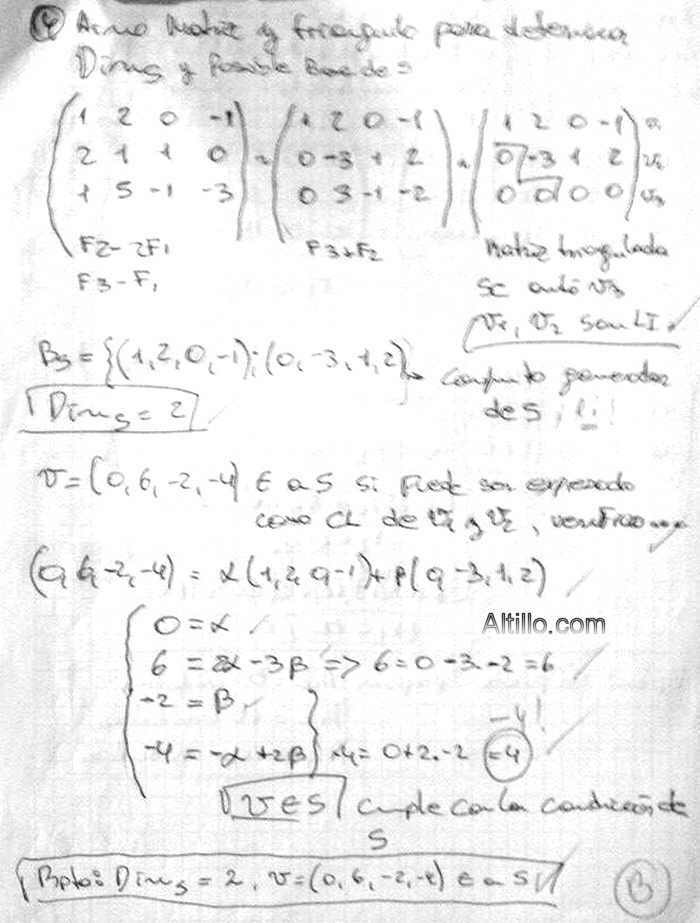 ④ Armo Matriz y triangulo para determinar
Dim S y Posible Base de S
1 2 0 -1
2 1 1 0
1 5 -1 -3
F2 - 2F1
F3 - F1
~
1 2 0 -1
0 -3 1 2
0 3 -1 -2
F3+F2
~
1 2 0 -1
0 -3 1 2 v2
0 0 0 0 v3
Matriz triangulada
se anuló v3
v1, v2 son LI.
Bs = {(1,2,0,-1);(0,-3,1,2)} Conjunto generador
de S
Dim s = 2
v = (0,6,-2,-4) ∈ a S si Puede ser expresado
como CL de v1 y v2, verifico
(0,6,-2,-4) = α(1,2,0-1)+β(0,-3,1,2)
0 = α
Altillo.com
6 = 2α - 3β => 6 = 0 - 3.-2 = 6
-2 = β
-4!
-4 = -α + 2β -4 = 0+2.-2 = 4
v ∈ S cumple con la condición de
S
Rpta: Dim s = 2, v = (0,6,-2,-4) ∈ a S
B